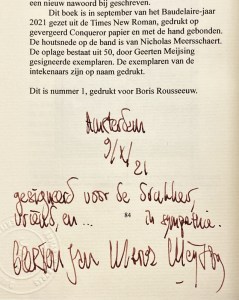 een nieuw nawoord bij geschreven.
Dit boek is in september van het Baudelaire-jaar
2021 gezet uit de Times New Roman, gedrukt op
gevergeerd Conqueror papier en met de hand gebonden.
De houtsnede op de band is van Nicholas Meersschaert.
De oplage bestaat uit 50, door Geerten Meijsing
gesigneerde exemplaren. De exemplaren van de
intekenaars zijn op naam gedrukt.
Dit is nummer 1, gedrukt voor Boris Rousseeuw.
Amsterdam
9/XI/
21
gesigneerd voor de drukker,
vriend, en ... in sympathie.
84
Geerten Jan Maria Meijsing